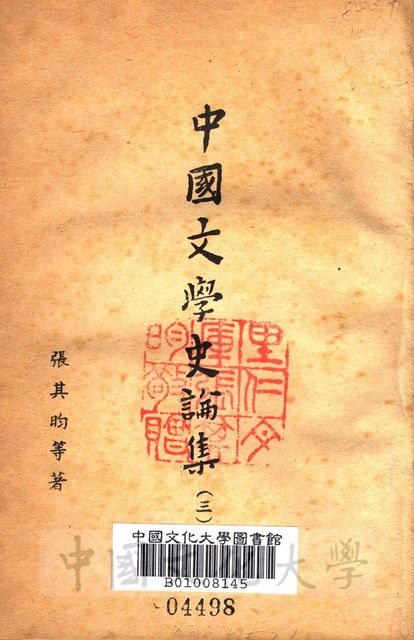 中國文學史論集
(三)
張其昀等著
中國文化大學圖書館
B01008145
04498
中國文化大學